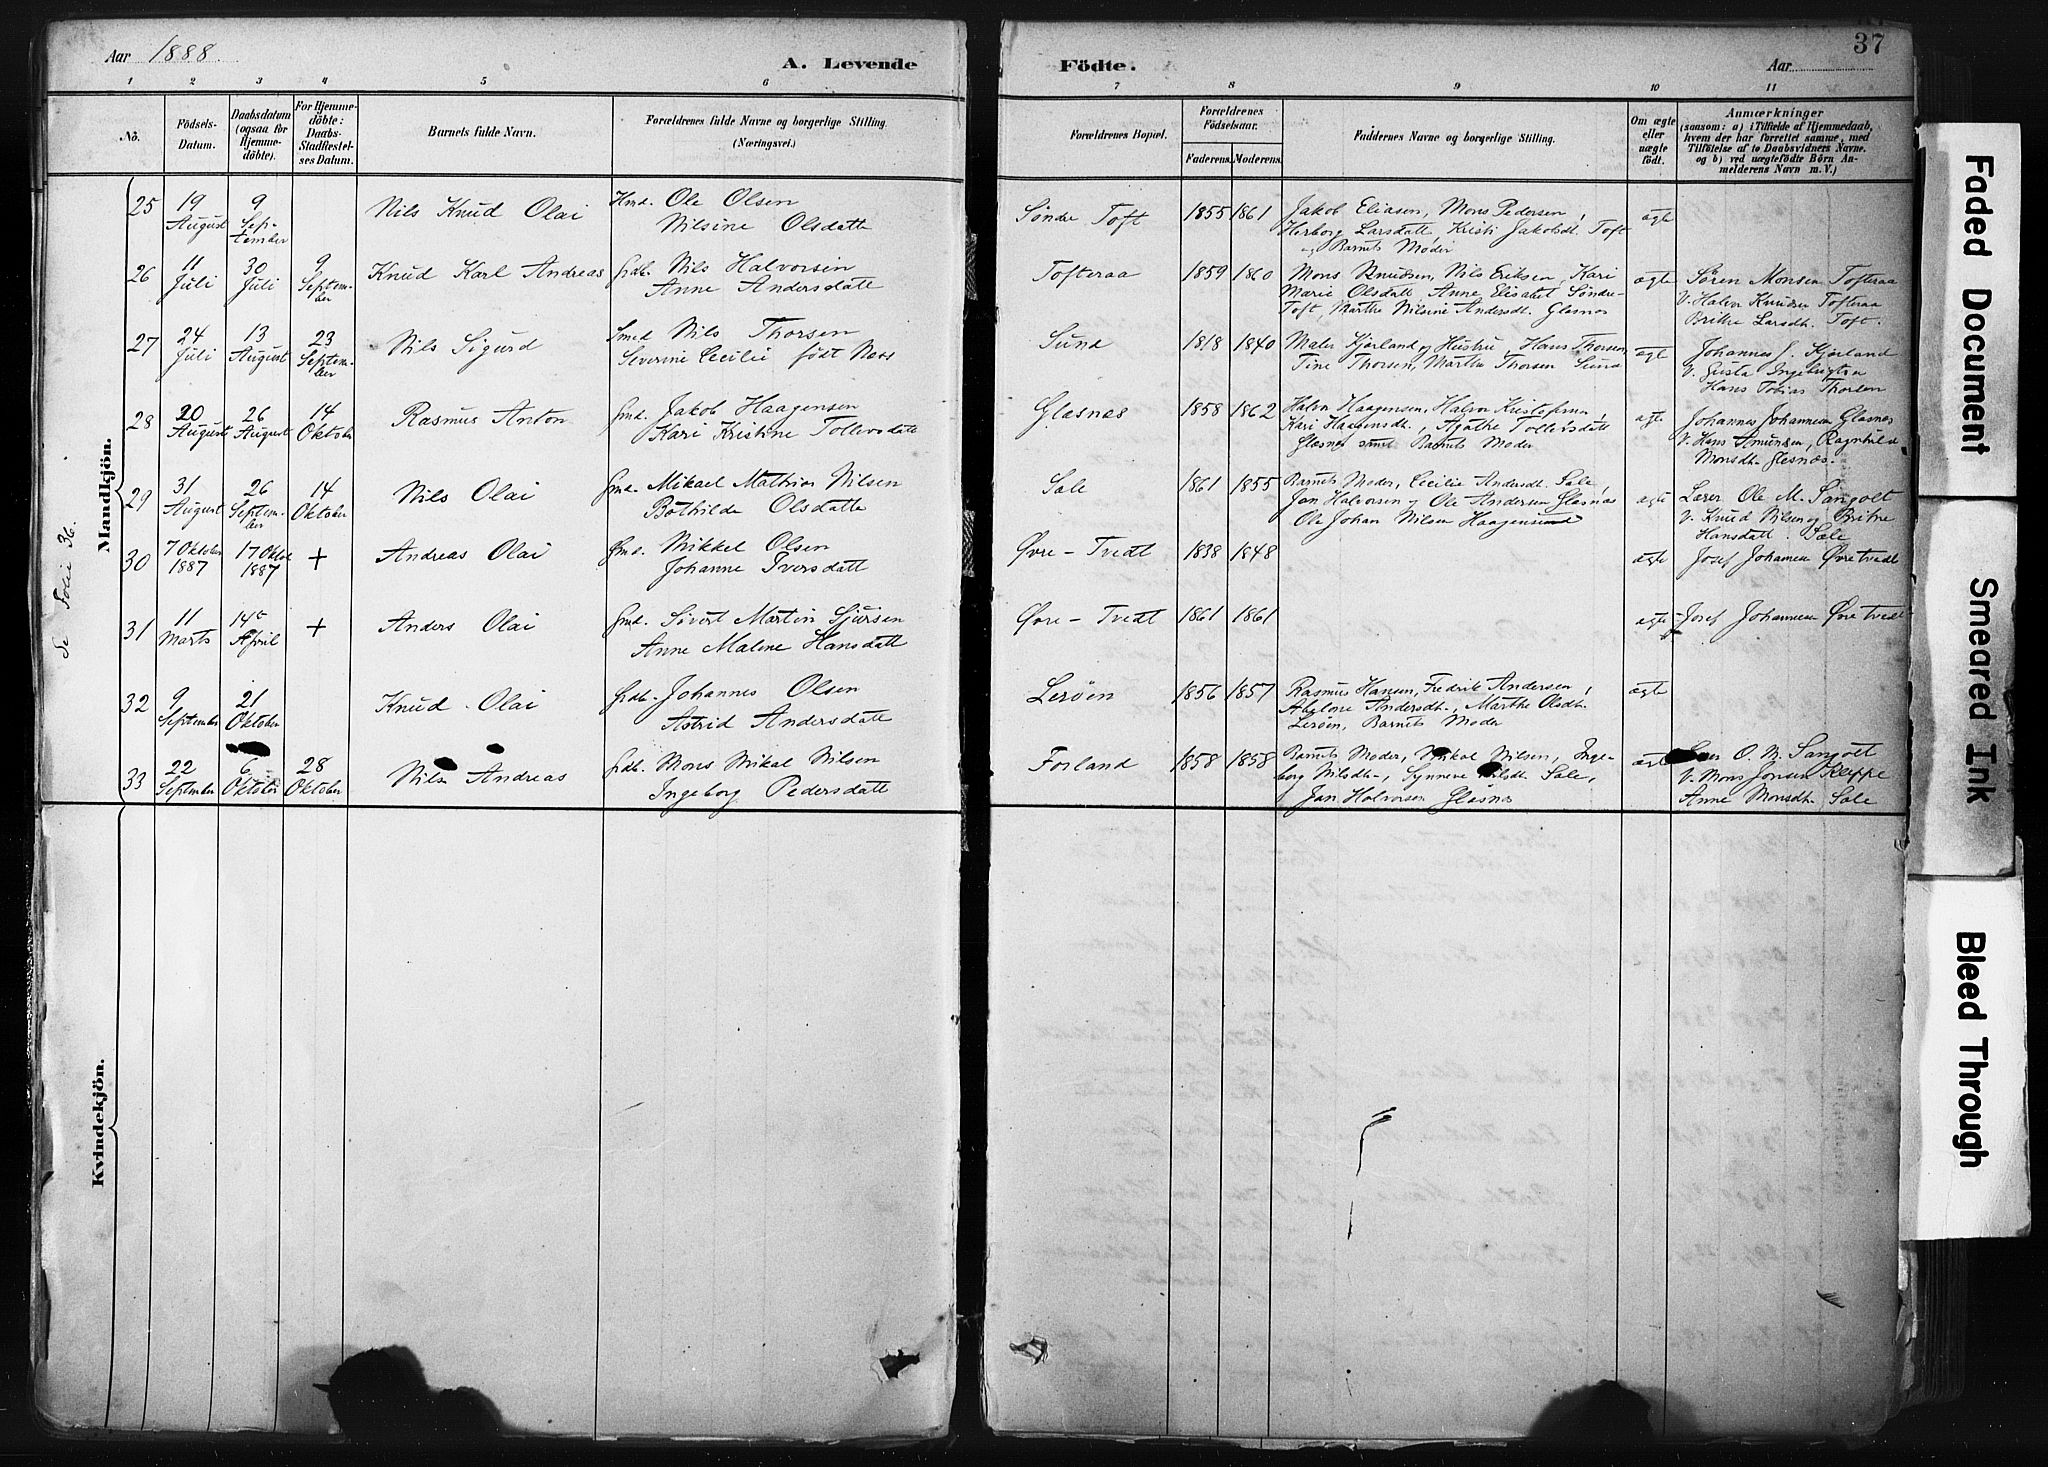 Aar 1888.
A. Levende
1 2 3 4 5 6
No.
Födsels-
Datum.
Daabsdatum
(ogsaa for
Hjemme-
döbte).
For Hjemme-
döbte:
Daabs-
Stadfæstel-
ses Datum.
Barnets fulde Navn.
Forældrenes fulde Navne og borgerlige Stilling.
(Næringsvei.)
Mandkjön.
Se Folie 36.
25 19 August 9 September Nils Knud Olai Hmd. Ole Olsen
Nilsine Olsdatter
26 11 Juli 30 Juli 9 September Knud Karl Andreas Grdb. Nils Halvorsen
Anne Andersdatte
27 24 Juli 13 August 23 September Nils Sigurd Smed Nils Thorsen
Severine Cecilie født Næs
28 20 August 26 August 14 Oktober Rasmus Anton Gmd. Jakob Haagensen
Kari Kristine Tollevsdatte
29 31 August 26 September 14 Oktober Nils Olai Gmd. Mikael Mathias Nilsen
Bothilde Olsdatte
30 7 Oktober 1887 17 Oktob 1887 + Andreas Olai Gmd. Mikkel Olsen
Johanne Iversdatt
31 11 Marts 14de April + Anders Olai Gmd. Sivert Martin Sjursen
Anne Malene Hansdatt
32 9 September 21 Oktober Knud Olai Grdb. Johannes Olsen
Astrid Andersdatt
33 22 September 6 Oktober 28 Oktober Nils Andreas Grdb. Mons Mikal Nilsen
Ingeborg Pedersdatt
Kvindekjön.
Födte.
Aar
37
7 8 9 10 11
Forældrenes Bopæl.
Forældrenes
Födselsaar.
Faderens. Moderens.
Faddernes Navne og borgerlige Stilling.
Om ægte
eller
uægte
födt.
Anmærkninger
(saasom: a) i Tilfælde af Hjemmedaab,
hvem der har forrettet samme, med
Tilföielse af to Daabsvidners Navne,
og b) ved uægtefödte Börn An-
melderens Navn m. V.)
Søndre Toft 1855 1861 Jakob Eliasen, Mons Pedersen,
Herborg Larsdatt Kristi Jakobsdt. Toft
og Barnets Moder
ægte
Tofteraa 1859 1860 Mons Knudsen, Nils Eriksen, Kari
Marie Olsdatt Anne Elisabet Søndre-
Toft, Marthe Nilsine Andersdt. Glasnes
ægte Søren Monsen Tofteraa
V. Halvor Knudsen Tofteraa
Brithe Larsdt. Toft.
Sund 1818 1840 Kjørland og Hustru, Hans Thorsen,
Tine Thorsen, Marthe Thorsen Sund
ægte Johannes J. Kjørland
V. Gusta Ingebrigtsen
Hans Tobias Thorsen
Glasnes 1858 1862 Halvor Haagensen, Halvor Kristofersen,
Kari Haagensdt., Agathe Tollevsdatt
Glesnes samt Barnets Moder
ægte Johannes Johannesen Glasnes
V. Hans Amundsen, Ragnhild
Monsdt. Glesnæs.
Sale 1861 1855 Barnets Moder, Cecilie Andersdt. Sale,
Jan Halvorsen og Ole Andersen Glasnes
Ole Johan Nilsen Haagensund
ægte Lærer Ole M. Sangolt
V. Knud Nilsen og Brithe
Hansdatt. Sale
Øvre-Tvedt 1838 1848 ægte Josef Johannesen Øvretvedt
Øvre-Tvedt 1861 1861 ægte Josef Johannesen Øvretvedt
Lerøen 1856 1857 Rasmus Hansen, Fredrik Andersen,
Abelone Andersdt., Marthe Olsdt.
Lerøen, Barnets Moder
ægte
Forland 1858 1858 Barnets Moder, Mikal Nilsen, Inge-
borg Nilsdt., Synneve Nilsdt. Sale,
Jan Halvorsen Glasnes
ægte O. M. Sangolt
V. Mons Jonsen Kleppe
Anne Monsdt. Sale
Faded Document
Smeared Ink
Bleed Through